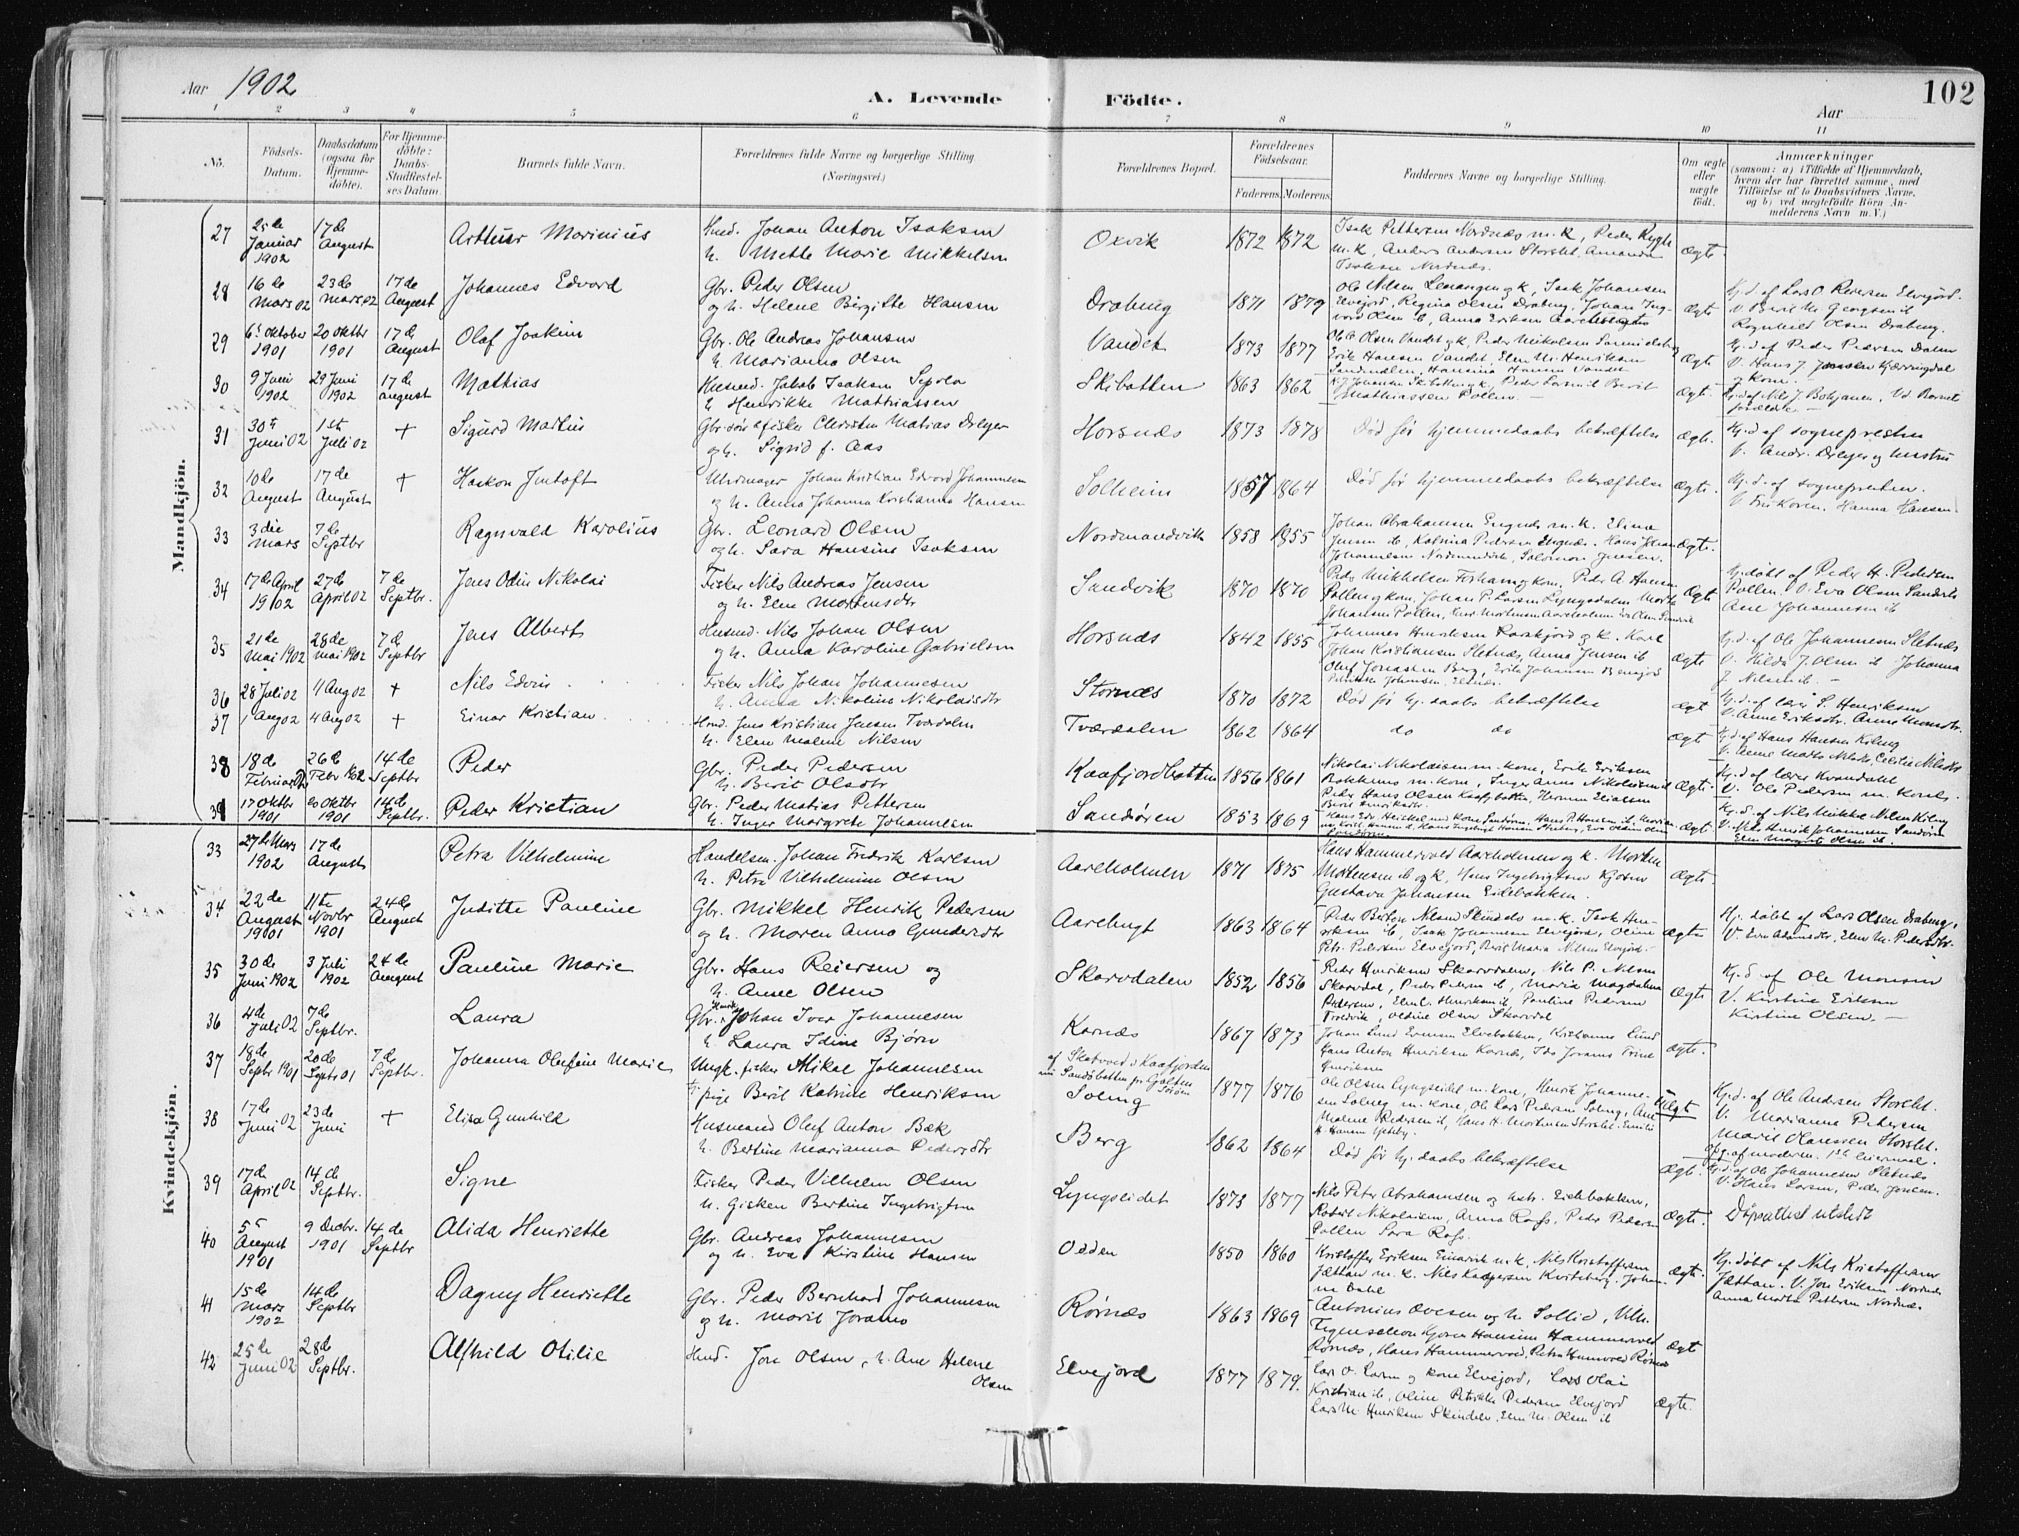 Aar 1902
A. Levende Födte.
Aar
102
1 2 3 4 5 6 7 8 9 10 11
No.
Födsels-Datum.
Daabsdatum (ogsaa for Hjemme-döbte).
For Hjemme-döbte: Daabs-Stadfæstel-ses Datum.
Barnets fulde Navn.
Forældrenes fulde Navne og borgerlige Stilling (Næringsvei.)
Forældrenes Bopæl.
Forældrenes Födselsaar.
Faderens. Moderens.
Faddernes Navne og borgerlige Stilling.
Om ægte eller uægte födt.
Anmærkninger
(saasom: a) i Tilfælde af Hjemmedaab,
hvem der har forrettet samme, med
Tilföielse af to Daabsvidners Navne,
og b) ved uægtefödte Börn An-
melderens Navn m. V.)
Mandkjön.
27 25de Januar 1902 17de August Arthur Marinius
Hmd. Johan Anton Isaksen
h. Mette Marie Mikkelsen
Oxvik 1872 1872
Isak Pettersen Nordnæs m. k, Peder
m. k, Anders Andersen Storslet, Amanda
Isaksen Nordnæs.
Ægte.
28 16de Mars 02 23de Mars 02 17de August Johannes Edvard
Gbr. Peder Olsen
og h. Helene Birgitte Hansen
Drabeng 1871 1879
Ole Nilsen Lenangen og k, Isak Johansen
Elvejord, Regina Olsen Drabeng, Johan Ing-
vard Olsen ib, Anna Eriksen
Ægte
Hj. d. af Lars O Reiersen Elvejord.
V. Berit M Georgsen ib
Ragnhild Olsen Drabeng.
29 6te oktober 1901 20 oktbr 1901 17de August Olaf Joakim
Gbr. Ole Andreas Johansen
h. Marianna Olsen
Vandet 1873 1877
Ole Olsen Vandet og k, Peder Nikolsen
Erik Hansen Vandet, Elen M. Henriksen
Sandmælen, Hansina Hansen Vandet
Ægte
Hj. d. af Peder Pedersen Dalen
V. Hans J. Jensen Kjærringdal
og kone.
30 9 Juni 1902 29 Juni 1902 17de august Mathias
Husmd. Jakob Isaksen Sepola
h. Henrikke Mathiassen
Skibotten 1863 1862
Johansen Skibotten og k, Peder Larsen ib Berit
Mathiassen Pollen.
Ægte.
Hj. d. af Nils J. Bohjanen, Vd Barnets
forældre
31 30te Juni 02 1ste Juli 02 + Sigurd Martin
Gbr. søn & fisker Christen Mathias Dreyer
og h. Sigrid f. Aas
Horsnæs 1873 1878
Død før hjemmedaabs bekræftelse
Ægte.
Hj. d af sognepresten
V. Andr. Dreyer og hustru
32 10de August 17de August + Haakon Jentoft
Uhrmager Johan Kristian Edvard Johannesen
og h. Anna Johanna Kristianna Hansen
Solheim 1857 1864
Død før hjemmedaabs bekræftelse
Ægte.
Hj. d. af sognepresten.
V. Fru Koren, Hanna Hansen.
33 3die Mars 7de Septbr Ragnvald Karolius
Gbr. Leonard Olsen
og h. Sara Hansine Isaksen
Nordmandvik 1858 1855
Johan Abrahamsen Engnes m. k. Eline
Jensen ib, Katrina Pedersen Engnæs, Hans Johan
Johannesen Nordmandvik, Salomon Jensen.
Ægte.
34 17de April 1902 27de April 02 7de Septbr. Jens Odin Nikolai
Fisker Nils Andreas Jensen
og h. Elen Mortensdtr
Sandvik 1870 1870
Peder Mikkelsen og kone, Peder A. Hansen
Pollen og kone, Johan P. Larsen Lyngsdalen
Johansen Pollen,
Ægte
Hj. døbt af Peder H. Pedersen
Pollen. V. Eva Olsen Sandvik
Ane Johannesen ib
35 21de Mai 1902 28de Mai 1902 7de Septbr Jens Albert
Husmd. Nils Johan Olsen
og h. Anna Karoline Gabrielsen
Horsnæs 1842 1855
Johannes Henriksen og k. Karl
Johan Kristiansen Sletnæs, Anna Jensen ib
Olef Jonassen Berg, Erik Johansen
Johansen,
Ægte
Hj. d. af Ole Johannesen Sletnæs
V. Hilda J. Olsen ib Johanna
J. Nilsen ib.
36 28 Juli 02 11 Aug 02 + Nils Edvin
Fisker Nils Johan Johannesen
h. Anna Nikoline Nikolaisdtr
Stornæs 1870 1872
Død før hj. daabs bekræftelse
Ægt
Hj. d. af lær S. Henriksen
V. Anne Eriksdtr. Anne Monsdtr.
37 1 Aug 02 4 Aug 02 + Einar Kristian
Hmd. Jens Kristian Jensen Tværdalen
h. Elen Malene Nilsen
Tværdalen 1862 1864
do do
Ægt
Hj. d af Hans Hansen Koleng
V. Anne
38 18de Februar 02 26de Febr 1902 14de Septbr Peder
Gbr. Peder Pedersen
h. Berit Olsdtr
Kaafjordbotten 1856 1861
Nikolai Nikolaisen m. kone, Erik Eriksen
m. kone, Inger Anna Nikolaisen ib
Peder Hans Olsen Kaafjbotten, Herman Eliassen
Berit Henriksdtr.
Ægte.
Hj. d. af lærer Kvandahl
V. Ole Pedersen m. kone.
39 17 oktbr 1901 20 oktbr 1901 14de Septbr. Peder Kristian
Gbr. Peder Matias Pettersen
h. Inger Margrete Johannesen
Sandøren 1853 1869
Ægt.
Hj. d. af Nils Mikkel Nilsen Koleng
V. Nils Henrik Johannesen Sandøren
Elen Margrete Olsen ib.
Kvindekjön.
33 27de Mars 1902 17de August Petra Vilhelmine
Handelsm. Johan Fredrik Karlsen
h. Petra Vilhelmine Olsen
Aareholmen 1871 1875
Hans Hammervold Aareholmen og k. Morten
Mortensen ib og k, Hans Ingebrigtsen Kjosen
Gustava Johansen Eidebakken.
Ægte.
34 22de August 1901 11te Novbr 1901 24de August Juditte Pauline
Gbr. Mikkel Henrik Pedersen
og h. Maren Anna Gundersdtr
Aarebugt 1863 1864
Peder Berton Skindelv m. k. Isak Hen-
riksen ib, Isak Johannesen Elvejord, Oline
Petr. Pedersen Elvejord, Berit Maria Nilsen Elvejord.
Ægte
Hj. døbt af Lars Olsen Drabeng,
V. Eva Adamsdtr, Elen M. Pedersdtr.
35 30de Juni 1902 3 Juli 1902 24de August Pauline Marie
Gbr. Hans Reiersen og
h. Anne Olsen
Skarvdalen 1852 1856
Peder Henriksen Skarvdalen, Nils P. Nilsen
Skarvdal, Peder Petersen ib, Maria Magdalena
Pedersen, Elen Henriksen ib, Pauline Pedersen
Trollvik, Oldine Olsen Skarvdal
Ægte
Hj. d af Ole Monsen
V. Kirstine Eriksen
Kirstine Olsen.
36 4de Juli 02 7de Septbr. Laura
Gbr. Henrik Johan Iver Johannesen
h. Laura Idine Bjørn
Karnæs 1867 1873
Johan Lund Evensen Elvebakken, Kristianna Lund
Hans Anton Henriksen Karnæs, Ida Jorams Trine
Henriksen
Ægte.
37 18de Septbr 1901 20de Septr 01 7de Septbr. Johanna Olufine Marie
Ungk. fisker Mikal Johannesen
& pige Berit Katrine Henriksen
af Skatvold i Kaafjorden
nu Sandøbotten pr Galten Sørøen
Soleng 1877 1876
Ole Olsen Lyngseidet m. kone, Henrik Johanne-
sen Soleng m. kone, Ole Lars Pedersen Soleng, Ane
Malene Pedersen ib, Hans H. Mortensen Storslet. Emilie
H. Hansen
Uægt
Hj. d. af Ole Andersen Storslet.
V. Marianna Petersen
Marie Olaussen Storslet.
Opg. af moderen. 1ste leiermaal.
38 17de Juni 02 23de Juni + Elisa Gunhild
Husmand Oluf Anton Bæk
h. Bertine Marianna Pedersdtr
Berg 1862 1864
Død før hj. daabs bekræftelse
Ægte.
Hj. d. af Ole Johannesen Sletnæs
V. Hans Larsen, Peder Jensen.
39 17de April 02 14de Septbr. Signe
Fisker Peder Vilhelm Olsen
h. Gisken Bertine Ingebrigtsen
Lyngseidet 1873 1877
Nils Peter Abrahamsen og hstr. Eidebakken,
Robert Nikolaisen, Anna Rafs, Peder Pedersen
Pollen Sara Rafs.
Ægte.
Dåpsattest utstedt
40 5te August 1901 9 Decbr. 1901 14de Septbr Alida Henriette
Gbr. Andreas Johannesen
og h. Eva Kirstine Hansen
Odden 1850 1860
Kristoffer Eriksen m. k, Nils Kristoffersen
Jættan m. k. Nils Kaspersen Kviteberg. Johan-
ne
Ægte.
Hj. døbt af Nils Kristoffersen
Jættan. V. Jon Eriksen Nordnæs
Anna Marta Pettersen Nordnæs
41 15de Mars 1902 14de Septbr Dagny Henriette
Gbr. Peder Bernhard Johannesen
og h. Marit Joramo
Rørnæs 1863 1869
Antonius Ovesen og h. Sollid, Vilh.
Figenschou Kjosen Hansine Hammervold
Rørnæs, Hans Hammervold, Petra Hammervold Rørnæs
Ægt
42 25de Juni 02 28de Septbr. Alfhild Otilie
Hmd. Jon Olsen, h. Ane Helene
Olsen
Elvejord 1877 1879.
Lars O. Larsen og kone Elvejord, Lars Olai
Kristian ib, Oline Petrikke Pedersen Elvejord
Lars M. Henriksen Skindelv, Elen M. Olsen ib
Ægte.